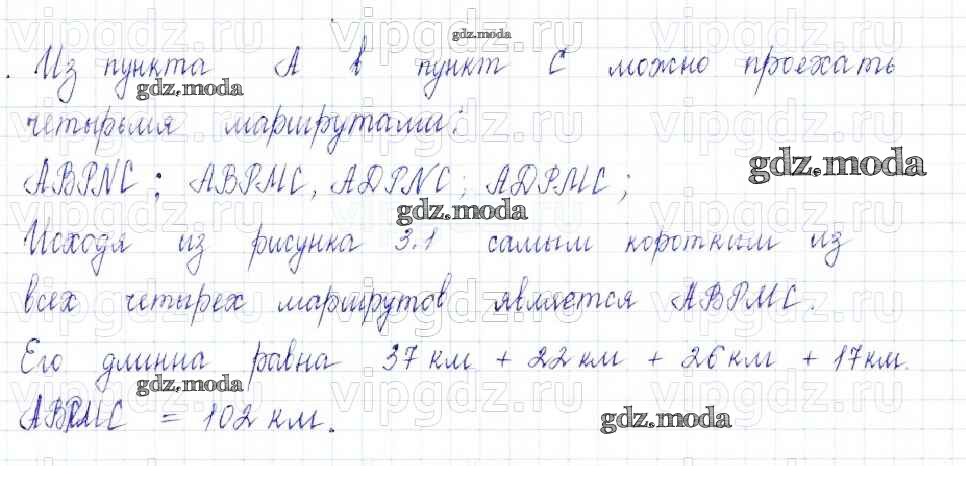 Из пункта А в пункт С можно проехать
четырьмя маршрутами:
ABPNC; ABPMC, ADPNC; ADPMC;
Исходя из рисунка 3.1 самым коротким из
всех четырех маршрутов является ABPMC.
Его длинна равна 37 км + 22 км + 26 км + 17 км.
ABPMC = 102 км.
gdz.moda
gdz.moda
gdz.moda
gdz.moda
gdz.moda
gdz.moda
vipgdz.ru